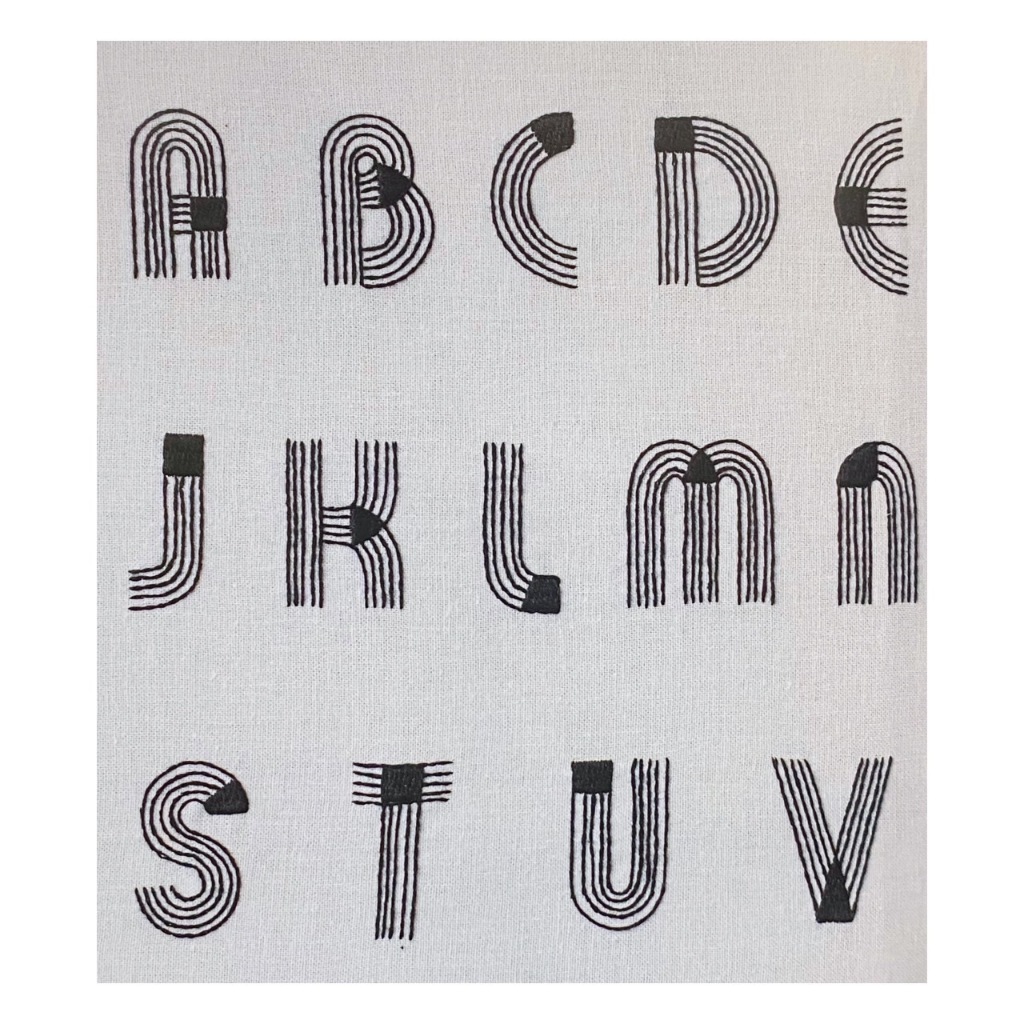 A B C D E
J K L M N
S T U V